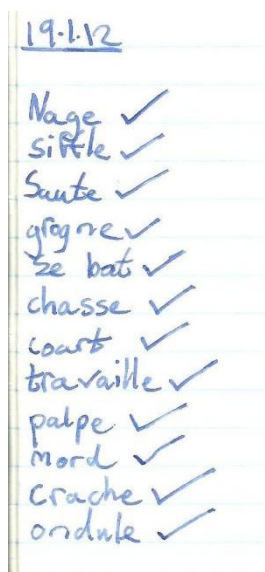 19.1.12
Nage ✓
siffle ✓
Saute ✓
grogne ✓
se bat ✓
chasse ✓
court ✓
travaille ✓
palpe ✓
Mord ✓
crache ✓
ondule ✓